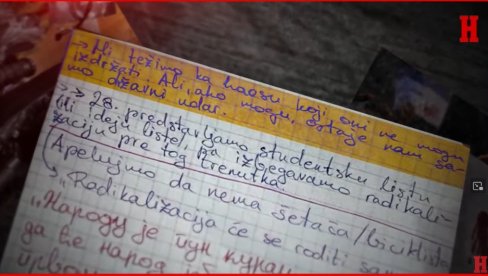 H
H
→ Mi težimo ka haosu koji oni ne mogu
izdržati. Ali, ako mogu, ostaje nam sa-
mo državni udar.
→ 28. predstavljamo studentsku listu
ili deju liste, pa izbegavamo radikali-
zaciju pre tog trenutka.
(Apelujmo da nema šetača/biciklista
→ "Radikalizacija će se roditi sam
"Народу је пун курац
да ће народ
H